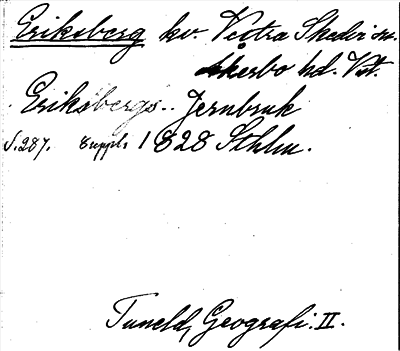 Eriksberg hv Vestra Skedvi sn.
Åkerbo hd. Vst.
Eriksbergs.. Jernbruk
S. 287. Suppl. 1828 Sthlm.
Tuneld, Geografi. II.